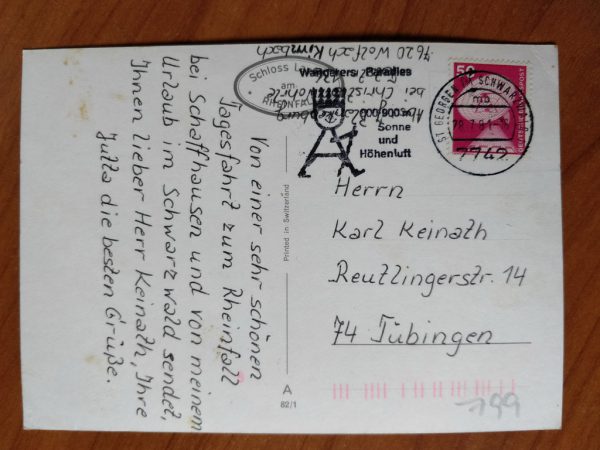 Von einer sehr schönen
Tagesfahrt zum Rheinfall
bei Schaffhausen und von meinem
Urlaub im Schwarzwald sendet,
Ihnen lieber Herr Keinath, Ihre
Jutta die besten Grüße.
7620 Wolfach Kirnbach
bei
Schloss
am
RHEINFALL
Wanderers Paradies
800-900m
Sonne
und
Höhenluft
50
ST GEORGEN IM SCHWARZW
mb
7742
Herrn
Karl Keinath
Reutlingerstr. 14
74 Tübingen
Printed in Switzerland
A
82/1
199